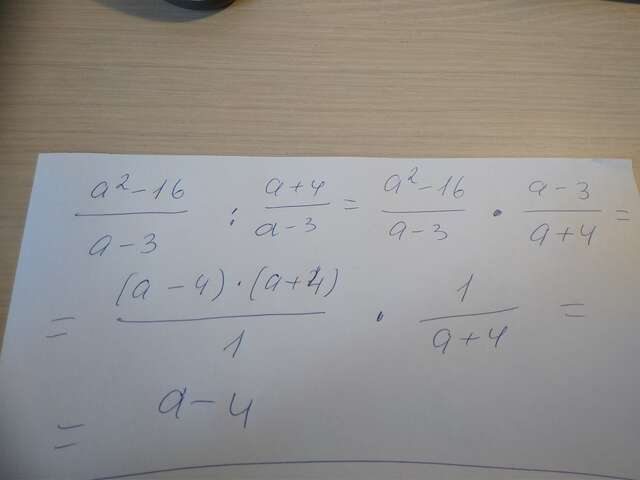 a²-16/a-3 : a+4/a-3 = a²-16/a-3 · a-3/a+4 =
= (a-4)·(a+4)/1 · 1/a+4 =
= a-4